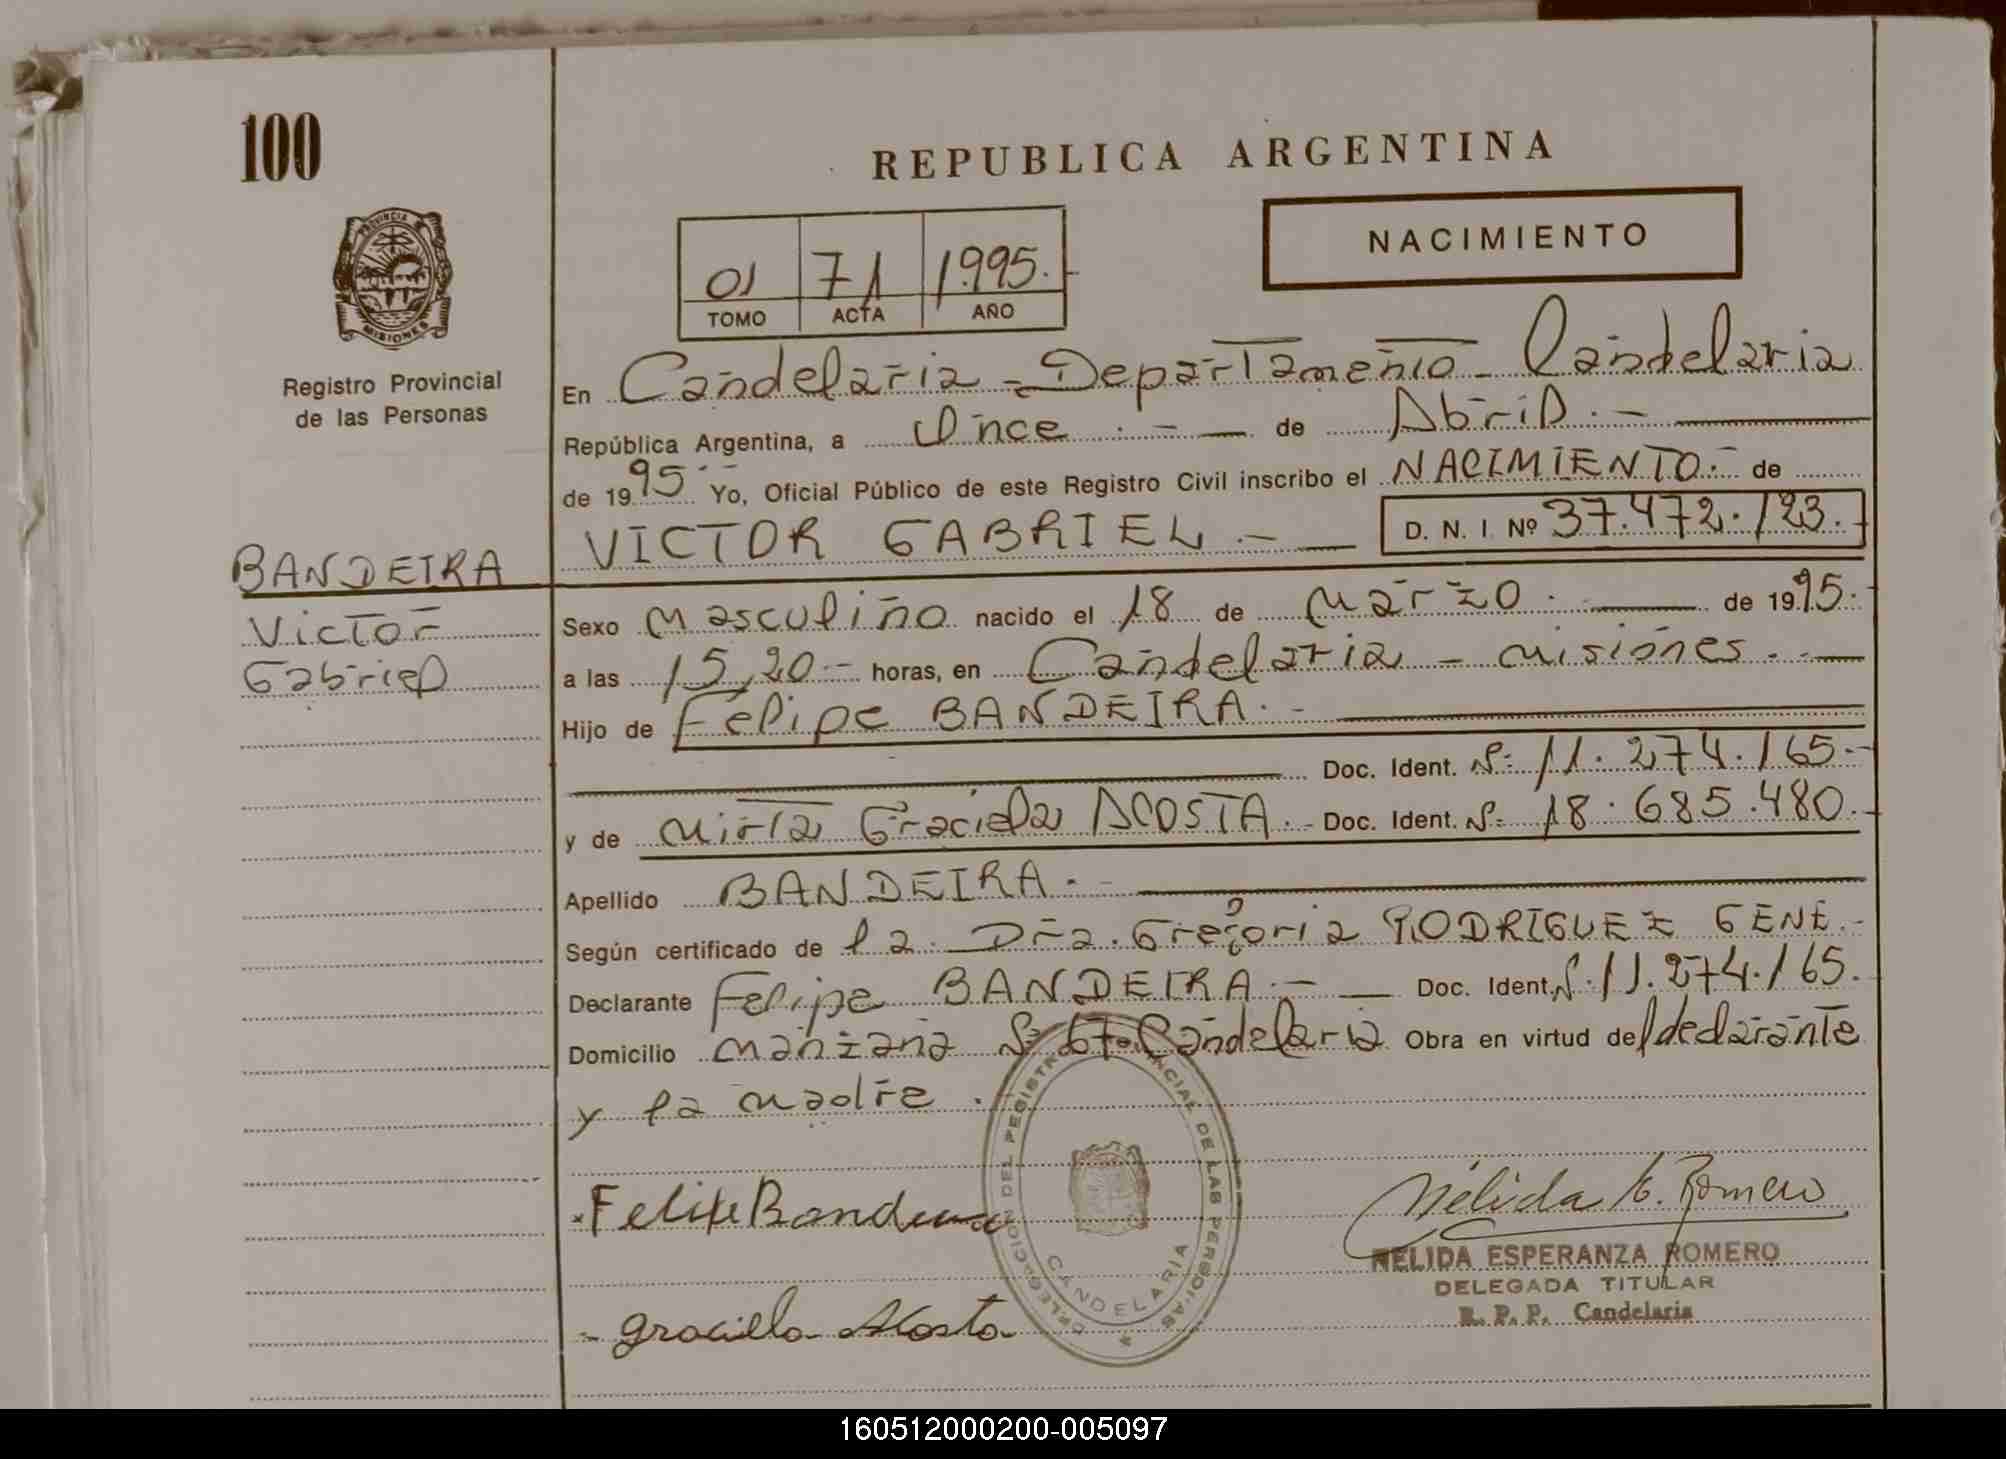 100
REPUBLICA ARGENTINA
PROVINCIA DE
MISIONES
Registro Provincial
de las Personas
NACIMIENTO
01 71 1.995.-
TOMO ACTA AÑO
En Candelaria - Departamento - Candelaria
República Argentina, a Once . - — de Abril . -
de 1995.-- Yo, Oficial Público de este Registro Civil inscribo el NACIMIENTO.- de
VICTOR GABRIEL . - — D. N. I. Nº 37.472.123.-
BANDEIRA
Victor
Gabriel
Sexo Masculino nacido el 18 de Marzo . — de 1995.
a las 15,20.- horas, en Candelaria - Misiones . -
Hijo de Felipe BANDEIRA. -
Doc. Ident. Nº 11.274.165.-
y de Mirta Graciela ACOSTA. - Doc. Ident. Nº 18.685.480.-
Apellido BANDEIRA. -
Según certificado de la Dra. Gregoria RODRIGUEZ GENE.-
Declarante Felipe BANDEIRA. - — Doc. Ident. Nº 11.274.165.
Domicilio Manzana Nº 67-Candelaria Obra en virtud del declarante
y la madre .
DELEGACION DEL REGISTRO PROVINCIAL DE LAS PERSONAS
CANDELARIA
Felipe Bandeira
Nélida E. Romero
NELIDA ESPERANZA ROMERO
DELEGADA TITULAR
R. P. P. Candelaria
- Graciela Acosta
160512000200-005097